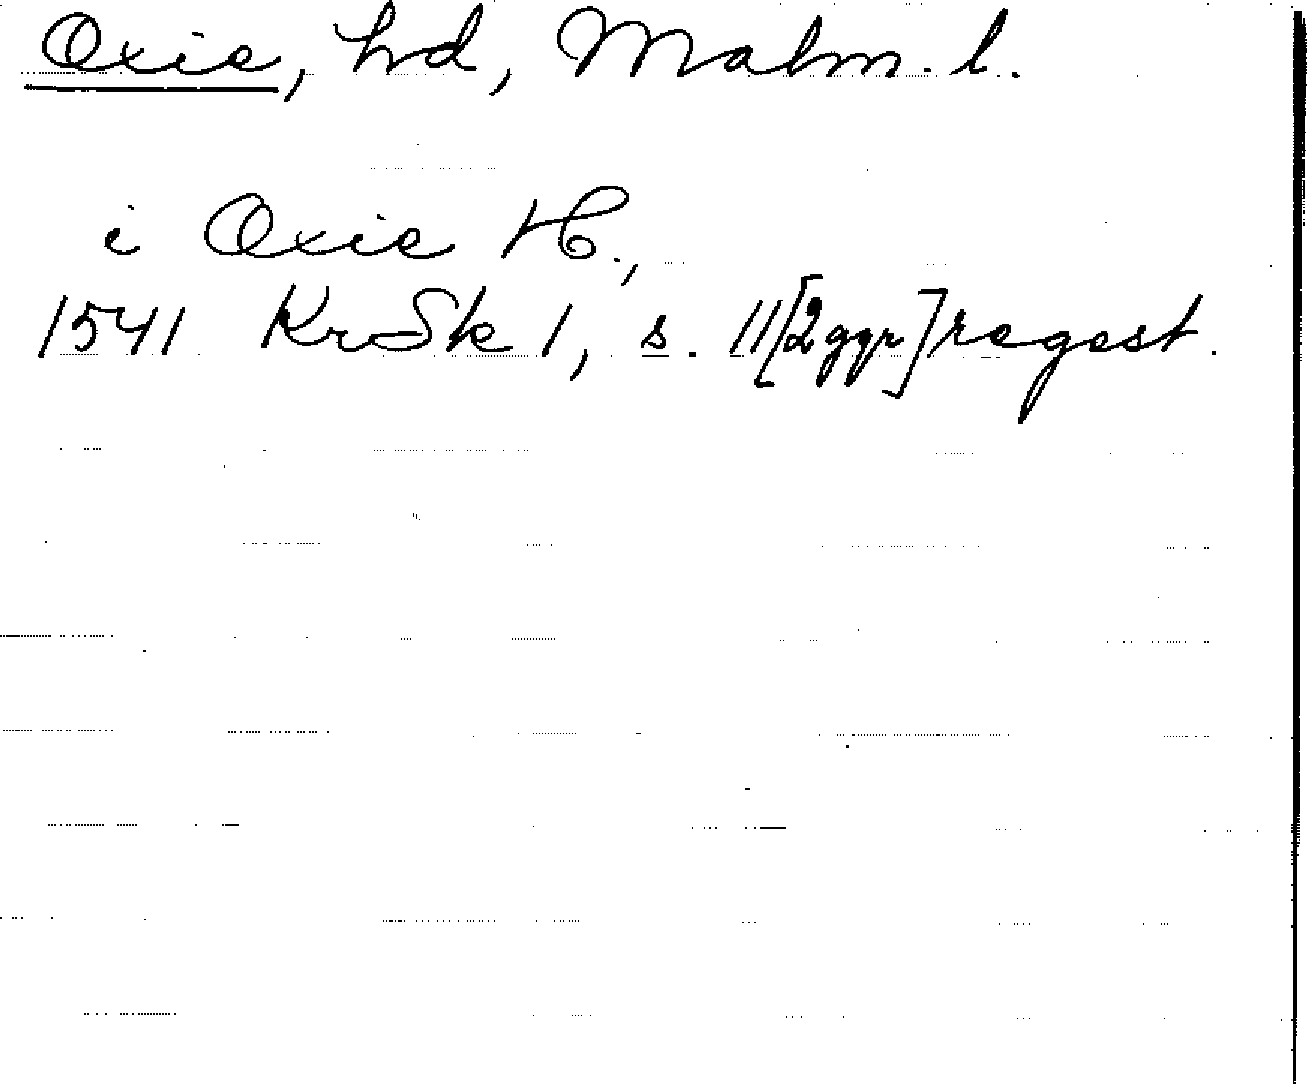 Oxie, hd, Malm. l.
i Oxie H.,
1541 KrSk 1, s. 11 [2 ggr] regest.